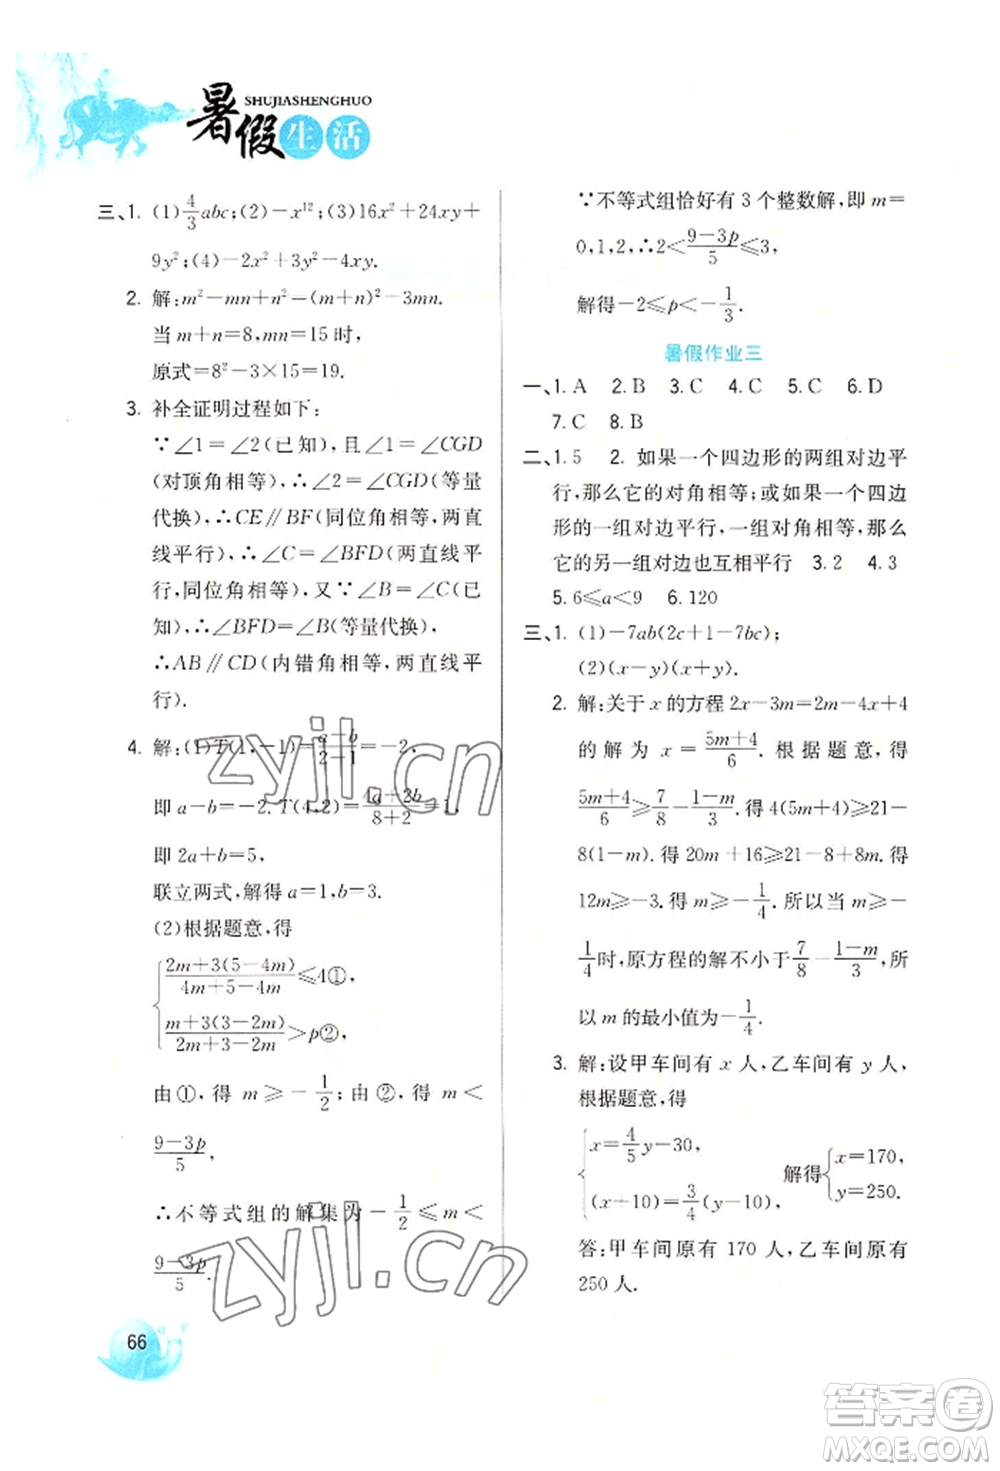 暑假生活
SHUJIASHENGHUO
三、1. (1)4/3abc;(2)-x¹²;(3)16x²+24xy+
9y²;(4)-2x²+3y²-4xy.
2. 解:m²-mn+n²=(m+n)²-3mn.
当 m+n=8,mn=15 时,
原式=8²-3×15=19.
3. 补全证明过程如下:
∵∠1=∠2(已知),且∠1=∠CGD
(对顶角相等),∴∠2=∠CGD(等量
代换),∴CE∥BF(同位角相等,两直
线平行),∴∠C=∠BFD(两直线平
行,同位角相等),又∵∠B=∠C(已
知),∴∠BFD=∠B(等量代换),
∴AB∥CD(内错角相等,两直线平
行).
4. 解:(1)T(1,-1)=(a-b)/(2-1)=-2,
即 a-b=-2. T(4,2)=(4a+2b)/(8+2)=1,
即 2a+b=5,
联立两式,解得 a=1,b=3.
(2)根据题意,得
{(2m+3(5-4m))/(4m+5-4m)≤4①,
(m+3(3-2m))/(2m+3-2m)>p②,
由①,得 m≥-1/2;由②,得 m<
(9-3p)/5,
∴不等式组的解集为-1/2≤m<
(9-3p)/5.
66
∵不等式组恰好有 3 个整数解,即 m=
0,1,2,∴2<(9-3p)/5≤3,
解得-2≤p<-1/3.
暑假作业三
一、1. A 2. B 3. C 4. C 5. C 6. D
7. C 8. B
二、1. 5 2. 如果一个四边形的两组对边平
行,那么它的对角相等;或如果一个四边
形的一组对边平行,一组对角相等,那么
它的另一组对边也互相平行 3. 2 4. 3
5. 6≤a<9 6. 120
三、1. (1)-7ab(2c+1-7bc);
(2)(x-y)(x+y).
2. 解:关于 x 的方程 2x-3m=2m-4x+4
的解为 x=(5m+4)/6. 根据题意,得
(5m+4)/6≥7/8-(1-m)/3. 得 4(5m+4)≥21-
8(1-m). 得 20m+16≥21-8+8m. 得
12m≥-3. 得 m≥-1/4. 所以当 m≥-
1/4时,原方程的解不小于7/8-(1-m)/3,所
以 m 的最小值为-1/4.
3. 解:设甲车间有 x 人,乙车间有 y 人,
根据题意,得
{x=4/5y-30,
(x+10)=3/4(y-10), 解得{x=170,
y=250.
答:甲车间原有 170 人,乙车间原有
250 人.
zyjl.cn
zyjl.cn
答案圈
MXQE.COM